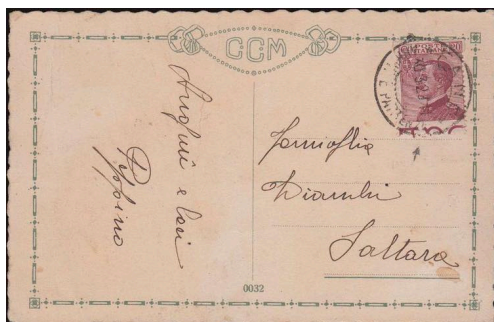 CCM
Auguri e baci
Peppino
famiglia
Diambri
Saltara
0032